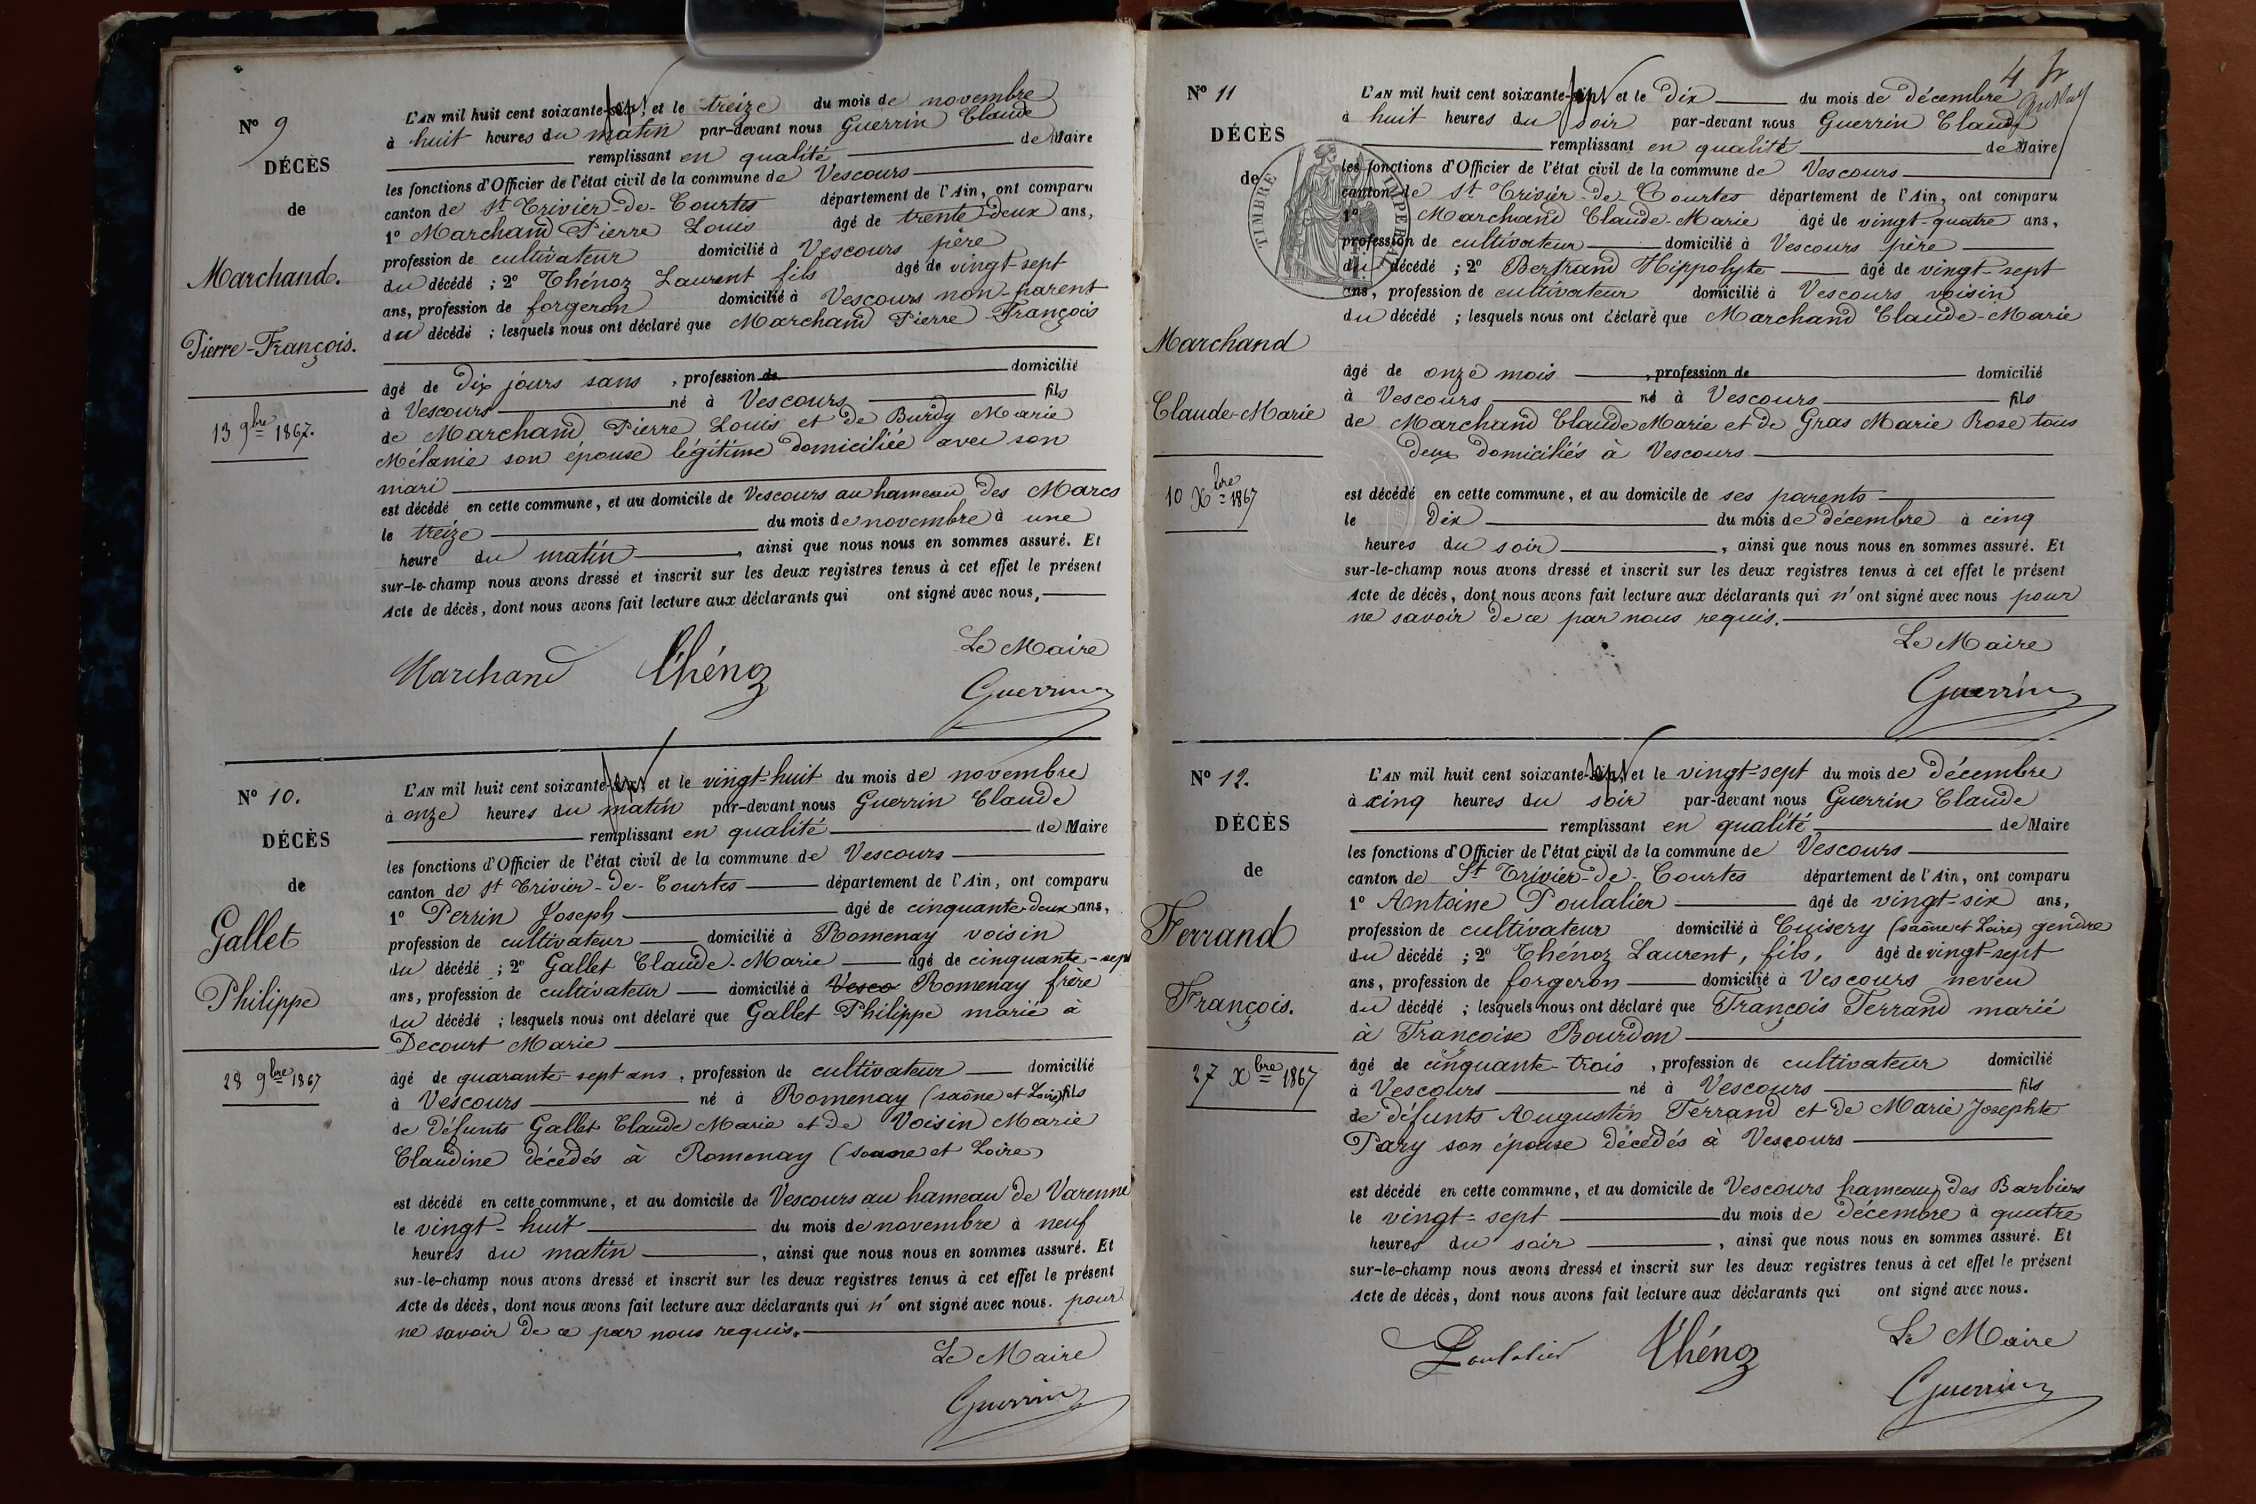 Nº 9
DÉCÈS
de
Marchand.
Pierre-François.
13 9bre 1867.
L'AN mil huit cent soixante-sept et le treize du mois de novembre
à huit heures du matin par-devant nous Guerrin Claude
remplissant en qualité de Maire
les fonctions d'Officier de l'état civil de la commune de Vescours
canton de St Trivier-de-Courtes département de l'Ain, ont comparu
1º Marchand Pierre Louis âgé de trente-deux ans,
profession de cultivateur domicilié à Vescours père
du décédé ; 2º Thénoz Laurent fils âgé de vingt-sept
ans, profession de forgeron domicilié à Vescours non-parent
du décédé ; lesquels nous ont déclaré que Marchand Pierre François
âgé de dix jours sans , profession de domicilié
à Vescours né à Vescours fils
de Marchand Pierre Louis et de Burdy Marie
Mélanie son épouse légitime domiciliée avec son
mari
est décédé en cette commune, et au domicile de Vescours au hameau des Marcs
le treize du mois de novembre à une
heure du matin , ainsi que nous nous en sommes assuré. Et
sur-le-champ nous avons dressé et inscrit sur les deux registres tenus à cet effet le présent
Acte de décès, dont nous avons fait lecture aux déclarants qui ont signé avec nous,
Le Maire
Marchand Thénoz Guerrin
Nº 10.
DÉCÈS
de
Gallet
Philippe
28 9bre 1867
L'AN mil huit cent soixante-sept et le vingt-huit du mois de novembre
à onze heures du matin par-devant nous Guerrin Claude
remplissant en qualité de Maire
les fonctions d'Officier de l'état civil de la commune de Vescours
canton de St Trivier-de-Courtes département de l'Ain, ont comparu
1º Perrin Joseph âgé de cinquante-deux ans,
profession de cultivateur domicilié à Romenay voisin
du décédé ; 2º Gallet Claude-Marie âgé de cinquante-sept
ans, profession de cultivateur domicilié à Vesco Romenay frère
du décédé ; lesquels nous ont déclaré que Gallet Philippe marié à
Decourt Marie
âgé de quarante-sept ans , profession de cultivateur domicilié
à Vescours né à Romenay (saône et Loire) fils
de défunts Gallet Claude Marie et de Voisin Marie
Claudine décédés à Romenay (saone et Loire)
est décédé en cette commune, et au domicile de Vescours au hameau de Varenne
le vingt-huit du mois de novembre à neuf
heures du matin , ainsi que nous nous en sommes assuré. Et
sur-le-champ nous avons dressé et inscrit sur les deux registres tenus à cet effet le présent
Acte de décès, dont nous avons fait lecture aux déclarants qui n'ont signé avec nous. pour
ne savoir de ce par nous requis.
Le Maire
Guerrin
4
Nº 11
DÉCÈS
de
TIMBRE IMPERIAL
Marchand
Claude-Marie
10 Xbre 1867
L'AN mil huit cent soixante-sept et le dix du mois de décembre
à huit heures du soir par-devant nous Guerrin Claude
remplissant en qualité de Maire
les fonctions d'Officier de l'état civil de la commune de Vescours
canton de St Trivier-de-Courtes département de l'Ain, ont comparu
1º Marchand Claude-Marie âgé de vingt-quatre ans,
profession de cultivateur domicilié à Vescours père
du décédé ; 2º Bertrand Hippolyte âgé de vingt-sept
ans, profession de cultivateur domicilié à Vescours voisin
du décédé ; lesquels nous ont déclaré que Marchand Claude-Marie
âgé de onze mois , profession de domicilié
à Vescours né à Vescours fils
de Marchand Claude Marie et de Gras Marie Rose tous
deux domiciliés à Vescours
est décédé en cette commune, et au domicile de ses parents
le dix du mois de décembre à cinq
heures du soir , ainsi que nous nous en sommes assuré. Et
sur-le-champ nous avons dressé et inscrit sur les deux registres tenus à cet effet le présent
Acte de décès, dont nous avons fait lecture aux déclarants qui n'ont signé avec nous pour
ne savoir de ce par nous requis.
Le Maire
Guerrin
Nº 12.
DÉCÈS
de
Ferrand
François.
27 Xbre 1867
L'AN mil huit cent soixante-sept et le vingt-sept du mois de décembre
à cinq heures du soir par-devant nous Guerrin Claude
remplissant en qualité de Maire
les fonctions d'Officier de l'état civil de la commune de Vescours
canton de St Trivier-de-Courtes département de l'Ain, ont comparu
1º Antoine Poulalier âgé de vingt-six ans,
profession de cultivateur domicilié à Cuisery (saône et Loire) gendre
du décédé ; 2º Thénoz Laurent, fils, âgé de vingt-sept
ans, profession de forgeron domicilié à Vescours neveu
du décédé ; lesquels nous ont déclaré que François Ferrand marié
à Françoise Bourdon
âgé de cinquante-trois , profession de cultivateur domicilié
à Vescours né à Vescours fils
de défunts Augustin Ferrand et de Marie Josephte
Pary son épouse décédés à Vescours
est décédé en cette commune, et au domicile de Vescours hameau des Barbiers
le vingt-sept du mois de décembre à quatre
heures du soir , ainsi que nous nous en sommes assuré. Et
sur-le-champ nous avons dressé et inscrit sur les deux registres tenus à cet effet le présent
Acte de décès, dont nous avons fait lecture aux déclarants qui ont signé avec nous.
Le Maire
Poulalier Thénoz Guerrin